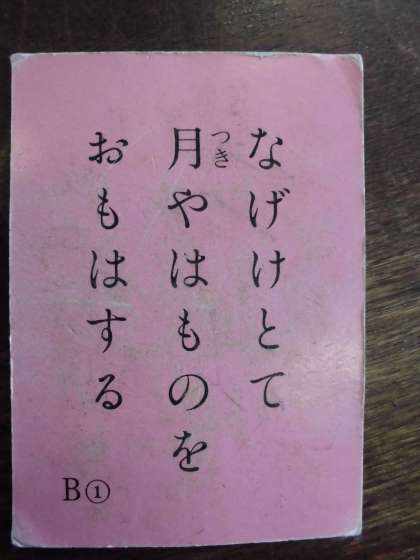 なげけとて
月やはものを
つき
おもはする
B①